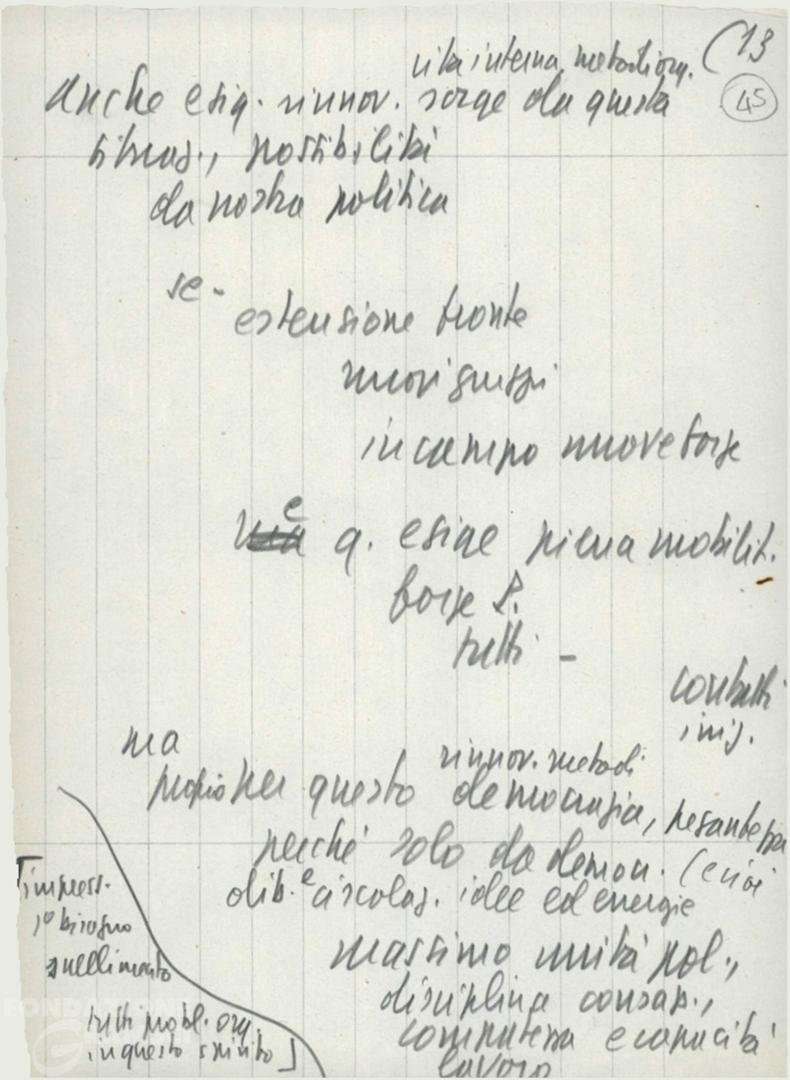 (13
45
vita interna, metodi org.
anche esig. rinnov. sorge da questa
situaz., possibilità
da nostra politica
se -
estensione fronte
nuovi gruppi
in campo nuove forze
e
q. esige piena mobilit.
forze P.
tutti -
contatti
iniz.
ma
rinnov. metodi
proprio per questo democrazia, pesantezza
perché solo da democr. (crisi
dib. e circolaz. idee ed energie
massimo unità pol.,
disciplina consap.,
compattezza e capacità
lavoro
[impress.
1° bisogno
snellimento
tutti probl. org.
in questo spirito]
FONDAZIONE